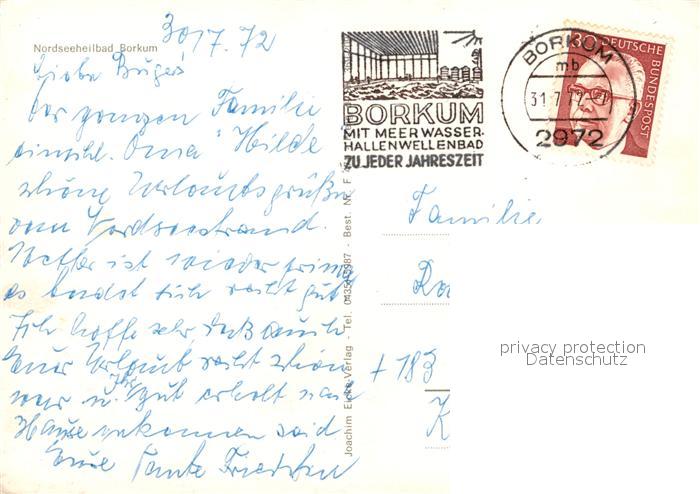 Nordseeheilbad Borkum
30/7.72
Liebe Buges
der ganzen Familie
einschl. Oma Hilde
schöne Urlaubsgrüße
vom Nordseestrand.
Wetter ist wieder prima
es badet sich recht gut
Ich hoffe sehr, daß auch
Euer Urlaub recht schön
war u. Ihr gut erholt nach
Hause gekommen seid
Eure Tante Friedchen
Joachim Eicke-Verlag - Tel. - Best. Nr. F
BORKUM
MIT MEERWASSER-
HALLENWELLENBAD
ZU JEDER JAHRESZEIT
BORKUM
mb
31.7.72
2972
30 DEUTSCHE BUNDESPOST
Familie
+ 183
K
privacy protection
Datenschutz